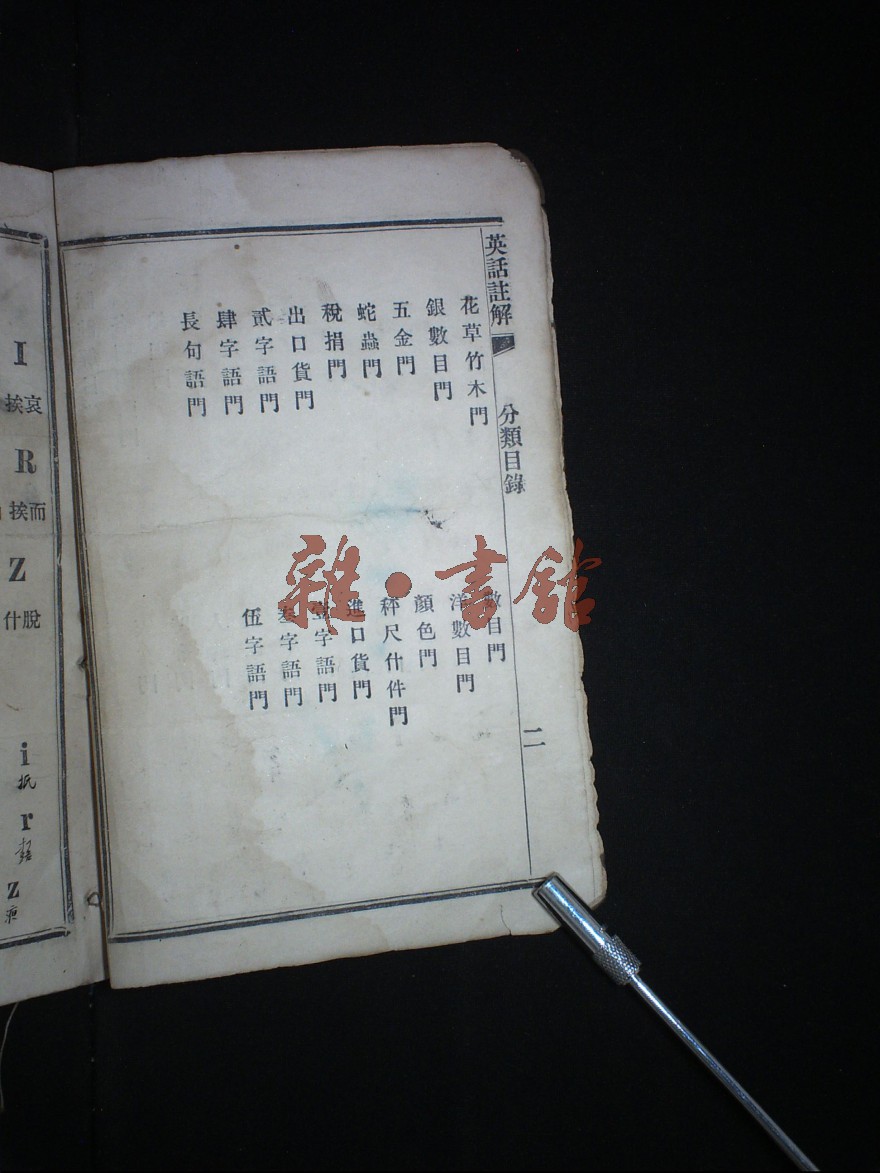 英話註解 分類目錄 二
花草竹木門
銀數目門
五金門
蛇蟲門
稅捐門
出口貨門
貳字語門
肆字語門
長句語門
數目門
洋數目門
顏色門
秤尺什件門
進口貨門
壹字語門
叁字語門
伍字語門
雜·書館
I
哀挨
R
而挨
Z
脫什
i
r
z